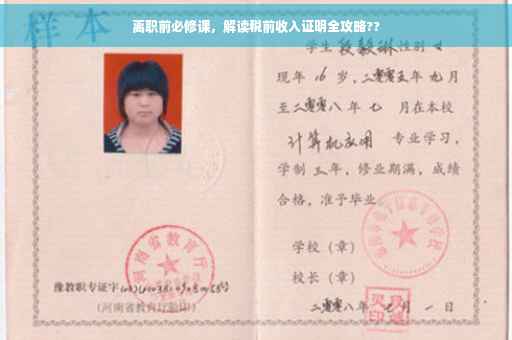 离职前必修课，解读税前收入证明全攻略??
样本
学生段毅琳性别女
现年16岁，二零零五年九月
至二零零八年七月在本校
计算机应用专业学习，
学制三年，修业期满，成绩
合格，准予毕业
学校（章）
校长（章）
河南省教育厅
豫教职专证字
（河南省教育厅验印）
二零零八年 月一日